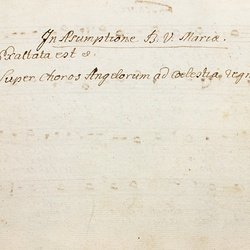 In Assumptione B. V. Mariæ.
Exaltata est &.
Super Choros Angelorum ad Coelestia regn